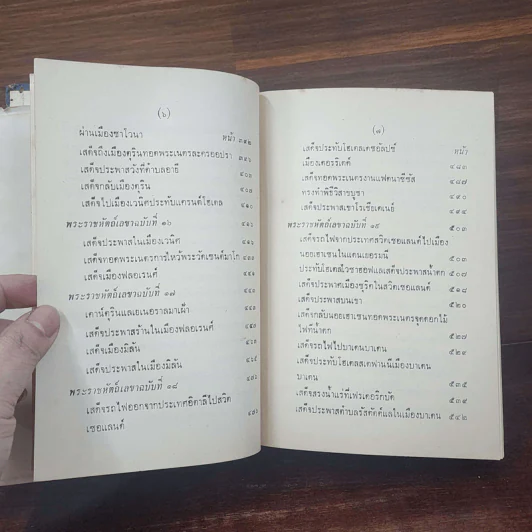 (๖)
หน้า
ผ่านเมืองซาโวนา ๓๙๒
เสด็จถึงเมืองตูรินทอดพระเนตรละครออปรา ๓๙๖
เสด็จประพาสวังที่ตำบลอายี ๔๐๓
เสด็จกลับเมืองตูริน ๔๐๗
เสด็จไปเมืองเวนิศประทับแครนด์โฮเตล
พระราชหัตถ์เลขาฉบับที่ ๑๖
เสด็จประพาสในเมืองเวนิศ
เสด็จทอดพระเนตรการไหว้พระวัดเซนต์มาโก
เสด็จเมืองฟลอเรนศ์
พระราชหัตถ์เลขาฉบับที่ ๑๗
เคาน์ตูรินแลเอเนอราลมาเฝ้า
เสด็จประพาสร้านในเมืองฟลอเรนศ์
เสด็จเมืองมิลัน
เสด็จประพาสในเมืองมิลัน
พระราชหัตถ์เลขาฉบับที่ ๑๘
เสด็จรถไฟออกจากประเทศอิตาลีไปสวิต
เซอแลนด์
(๗)
หน้า
เสด็จประทับโฮเตลเดอออิลปซ์
เมืองเตอริเตต์ ๔๘๓
เสด็จทอดพระเนตรงานแฟตนาซีซัส ๔๘๗
ทรงทำพิธีวิสาขบูชา ๔๙๔
เสด็จประพาสเขาโรเชียเดเนย์ ๔๙๔
พระราชหัตถ์เลขาฉบับที่ ๑๙ ๕๐๓
เสด็จรถไฟจากประเทศสวิตเซอแลนด์ไปเมือง
นอยเฮาเซนในแดนเยอรมนี ๕๐๓
ประทับโฮเตลไวซาฮอฟแลเสด็จประพาสน้ำตก ๕๐๘
เสด็จประพาศเมืองซูริคในสวิตเซอแลนด์ ๕๑๔
เสด็จประพาสบนเขา ๕๒๐
เสด็จกลับนอยเฮาเซนทอดพระเนตรจุดดอกไม้
ไฟที่น้ำตก ๕๒๗
เสด็จรถไฟไปบาเดนบาเดน ๕๒๙
เสด็จประทับโฮเตลสเตฟานนีเมืองบาเดน
บาเดน ๕๓๕
เสด็จสรงน้ำแร่ที่เฟรเดอริกบัด ๕๓๙
เสด็จประพาสตำบลรัสตัดต์แลในเมืองบาเดน ๕๔๒